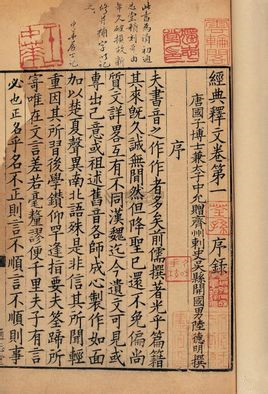 經典釋文卷第一
序錄
唐國子博士兼太子中允贈齊州刺史吳縣開國男陸德明撰
序
夫書音之作作者多矣前儒撰著光乎篇籍
其來既久誠無閒然但降聖已還不免偏尚
質文詳略互有不同漢魏迄今遺文可見或
專出己意或祖述舊音各師成心製作如面
加以楚夏聲異南北語殊是非信其所聞輕
重因其所習後學鑽仰罕逢指要夫筌蹄所
寄唯在文言差若毫釐謬便千里夫子有言
必也正名乎名不正則言不順言不順則事